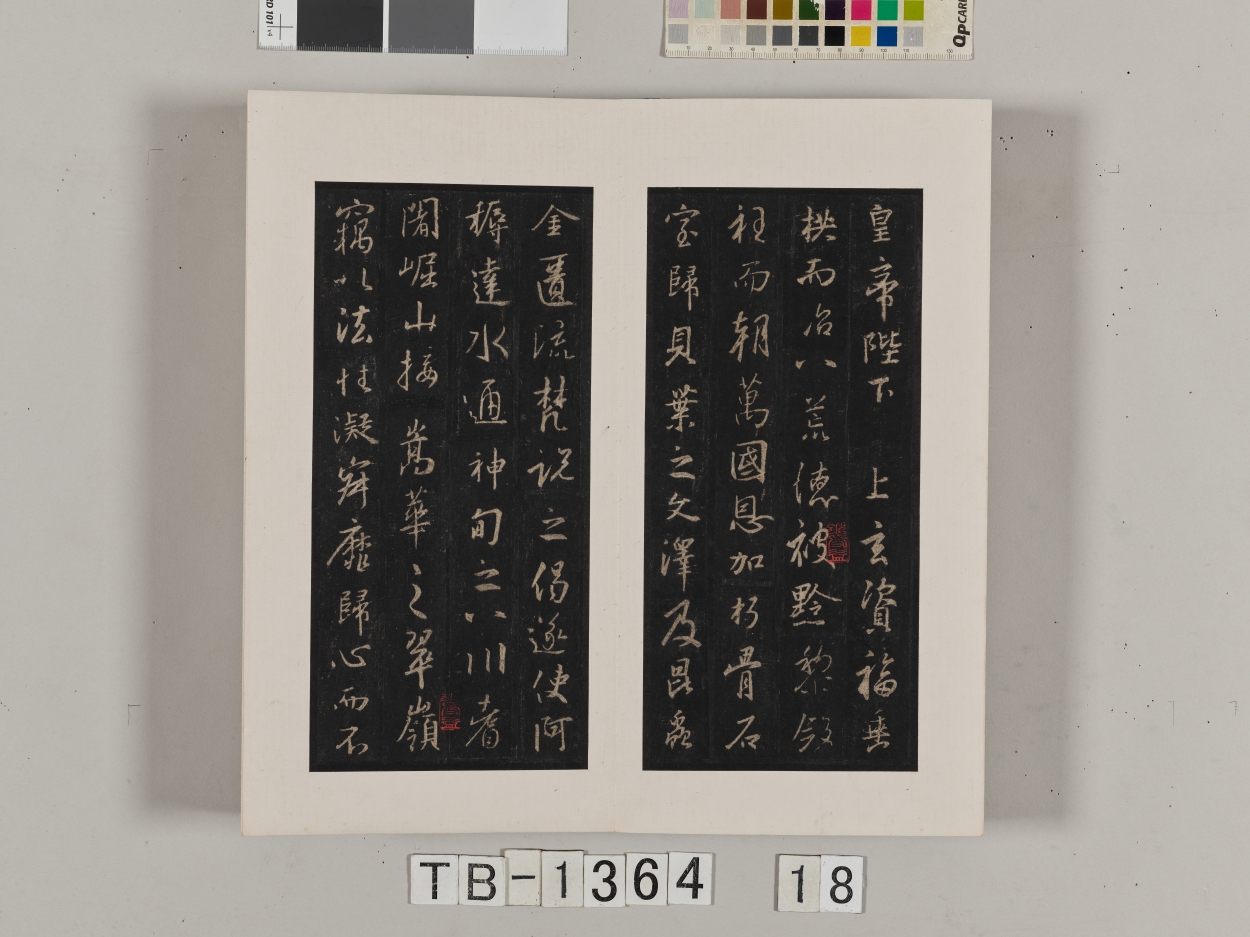 皇帝陛下 上玄資福垂
拱而治八荒德被黔黎斂
衽而朝萬國恩加朽骨石
室歸貝葉之文澤及昆蟲
金匱流梵說之偈遂使阿
耨達水通神甸之八川耆
闍崛山接嵩華之翠嶺
竊以法性凝寂靡歸心而不
TB-1364 18
QPCARD 101 v4
QPCARD